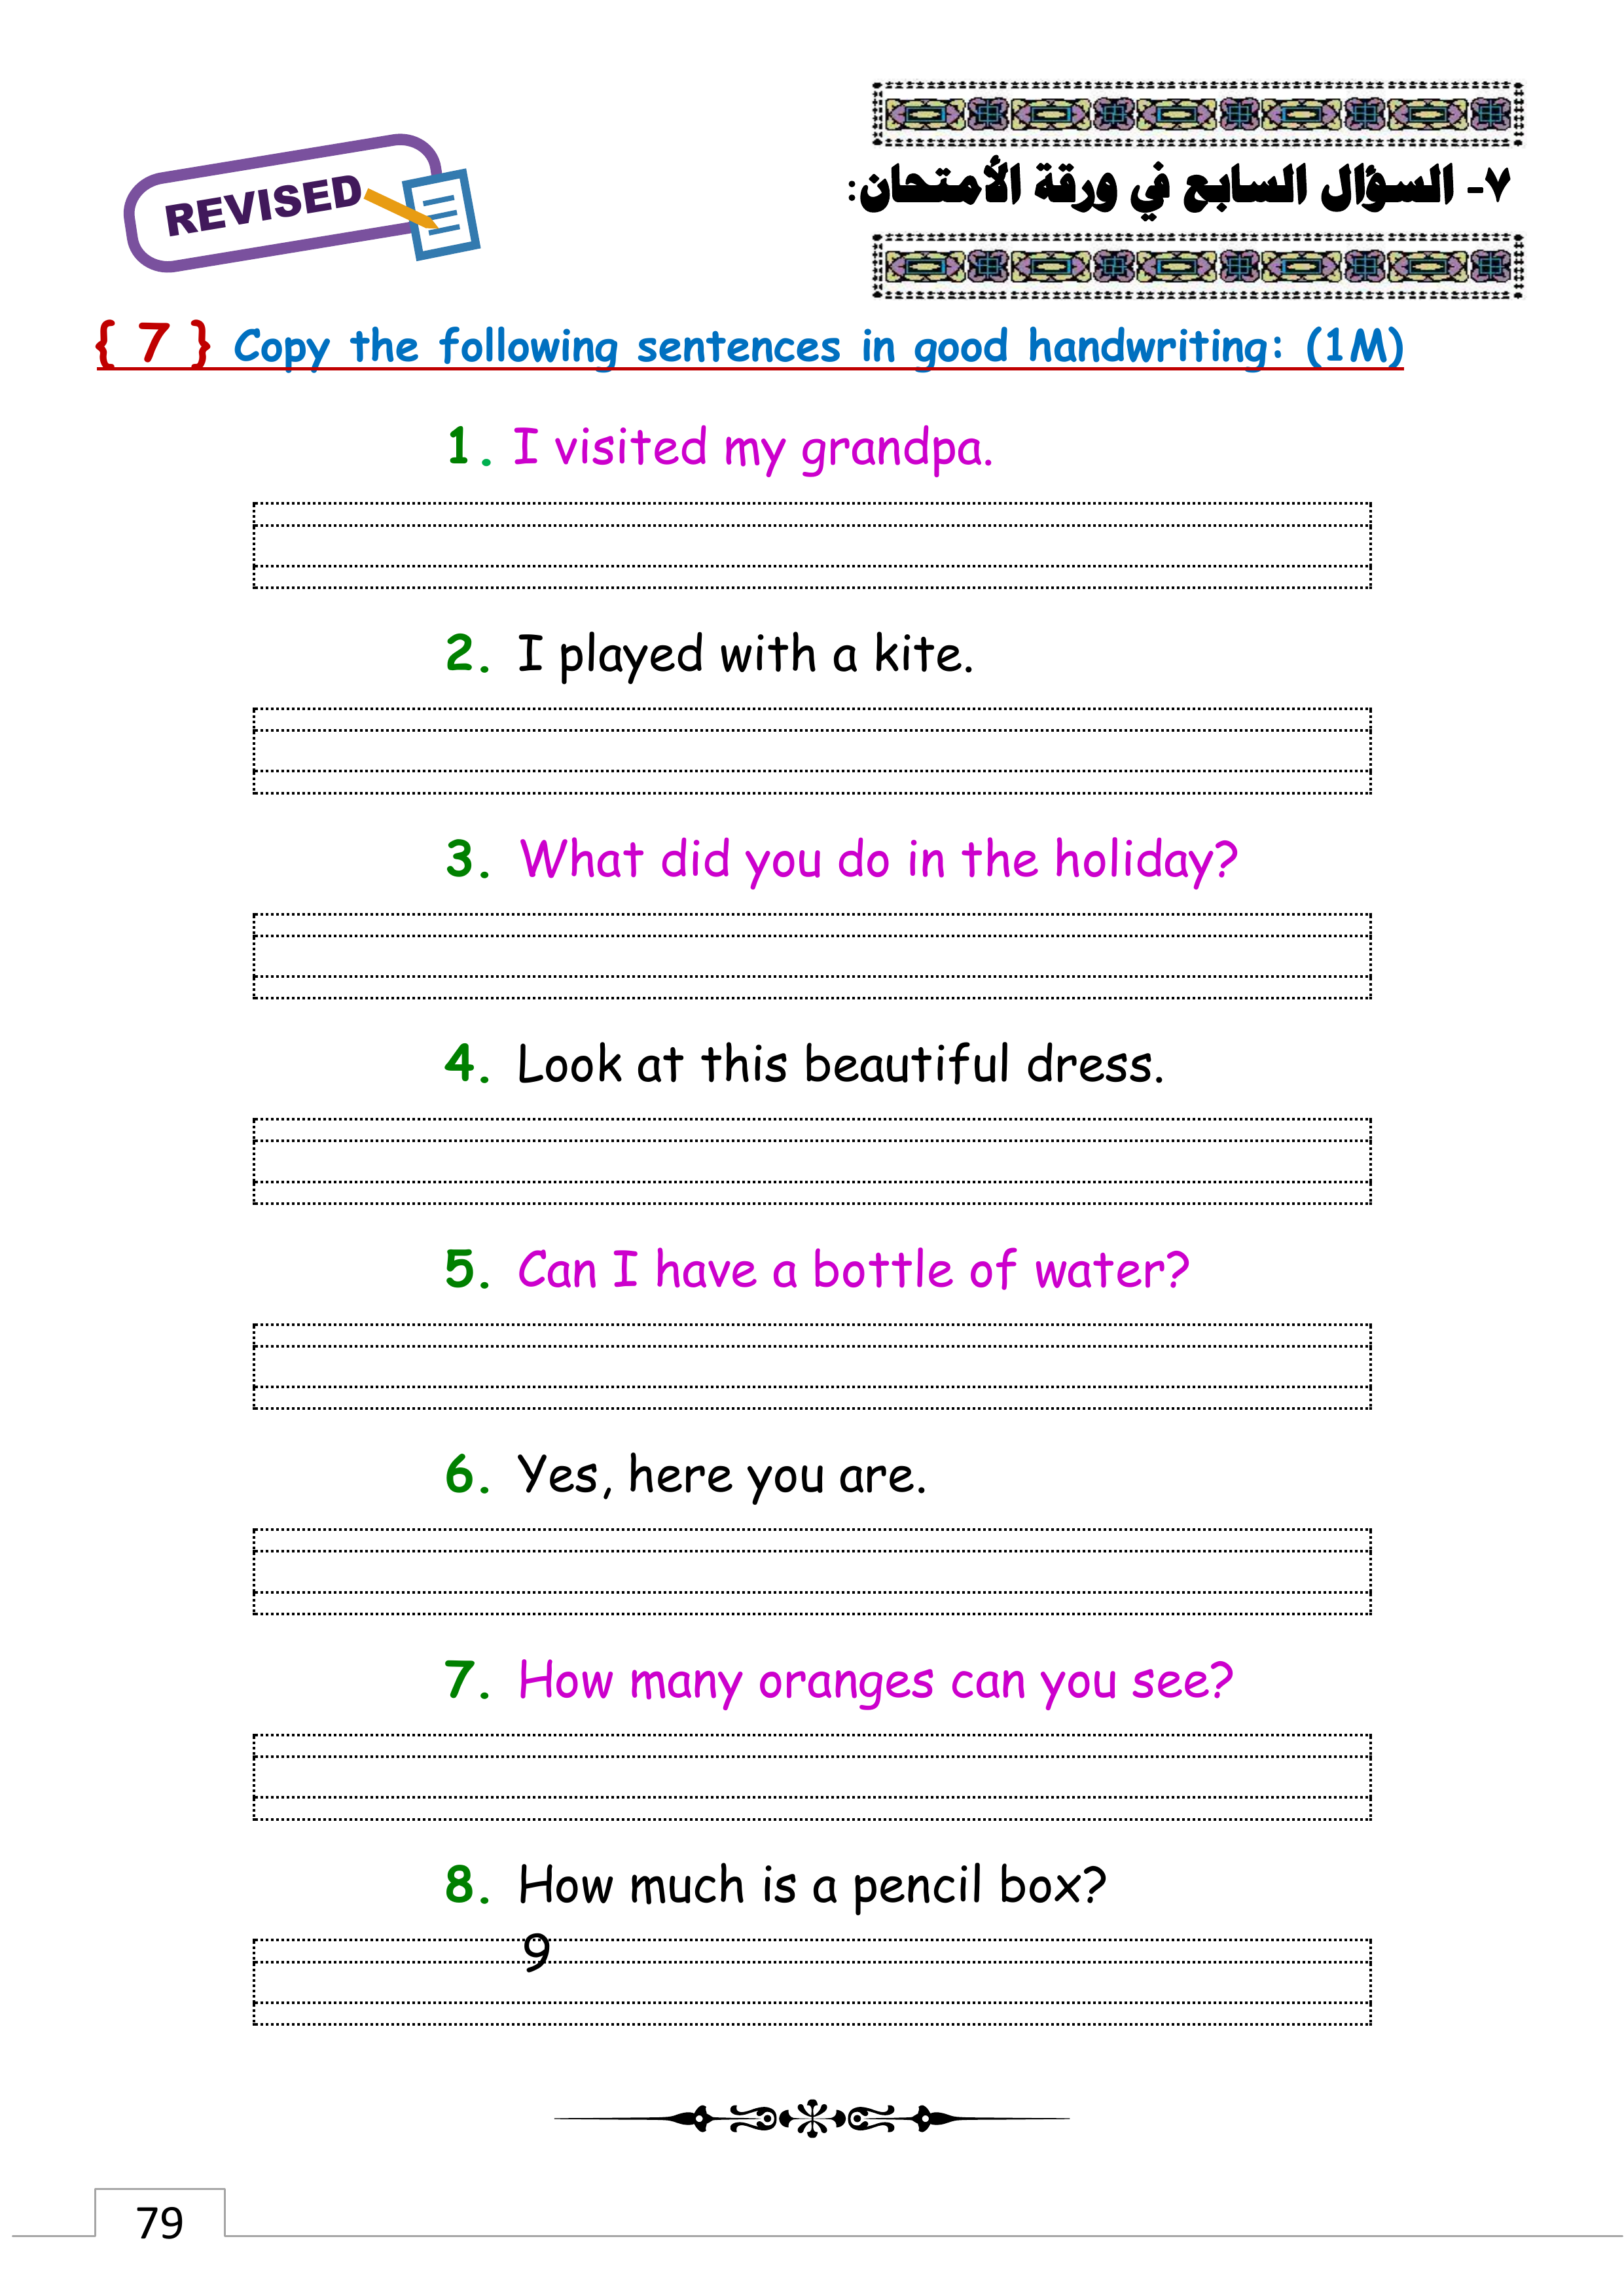 REVISED
٧- السؤال السابع في ورقة الأمتحان:
{ 7 } Copy the following sentences in good handwriting: (1M)
1. I visited my grandpa.
2. I played with a kite.
3. What did you do in the holiday?
4. Look at this beautiful dress.
5. Can I have a bottle of water?
6. Yes, here you are.
7. How many oranges can you see?
8. How much is a pencil box?
9
79